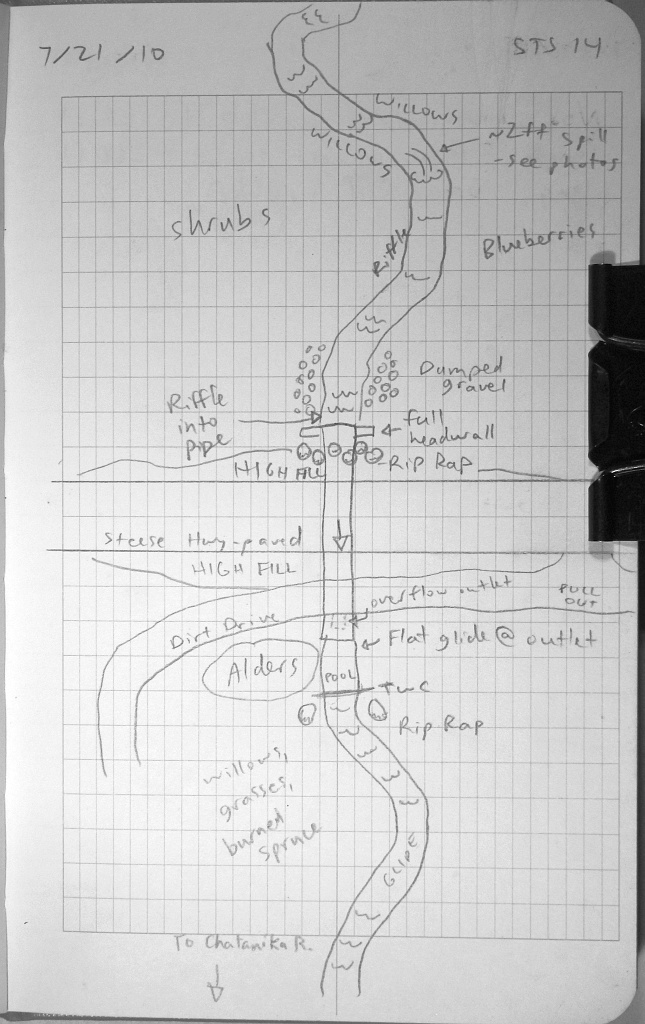 7/21/10
STS 14
WILLOWS
WILLOWS
~2ft spill
-see photos
shrubs
Riffle
Blueberries
Dumped
gravel
Riffle
into
pipe
full
headwall
HIGH FILL
Rip Rap
Steese Hwy-paved
HIGH FILL
overflow outlet
PULL
OUT
Dirt Drive
Flat glide @ outlet
Alders
POOL
TWC
Rip Rap
willows,
grasses,
burned
spruce
GLIDE
To Chatanika R.